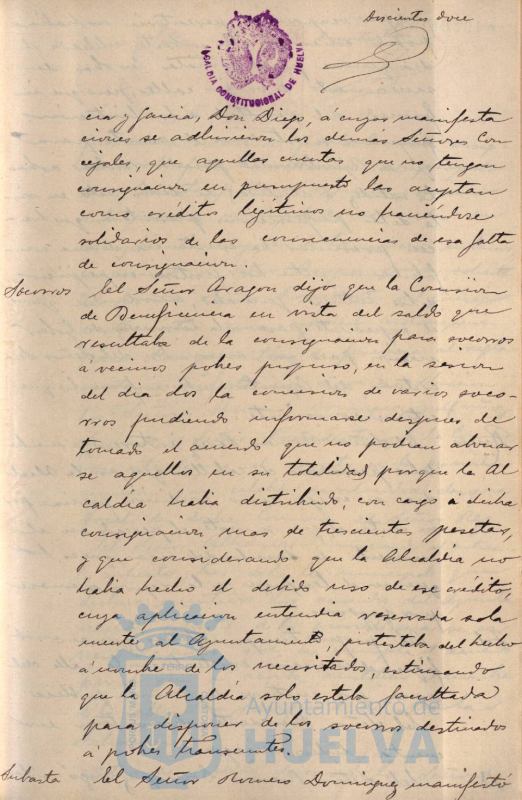 Doscientos doce
ALCALDIA CONSTITUCIONAL DE HUELVA
cia y Garcia, Don Diego, á cuyas manifesta
ciones se adhirieron los demás Señores Con
cejales, que aquellas cuentas que no tengan
consignacion en presupuesto las aceptan
como créditos legitimos no haciéndose
solidarios de las consecuencias de esa falta
de consignacion.
Socorros El Señor Aragon dijo que la Comision
de Beneficencia en vista del saldo que
resultaba de la consignacion para socorros
á vecinos pobres propuso, en la sesion
del dia dos la concesion de varios soco-
rros pudiendo informarse despues de
tomado el acuerdo que no podian abonar
se aquellos en su totalidad porque la Al
caldia habia distribuido, con cargo á dicha
consignacion mas de trescientas pesetas,
y que considerando que la Alcaldia no
habia hecho el debido uso de ese crédito,
cuya aplicacion entendia reservada sola
mente al Ayuntamiento, protestaba del hecho
á nombre de los necesitados, estimando
que la Alcaldía solo estaba facultada
para disponer de los socorros destinados
á pobres transeuntes.
Ayuntamiento de
HUELVA
Subasta El Señor Romero Dominguez manifestó